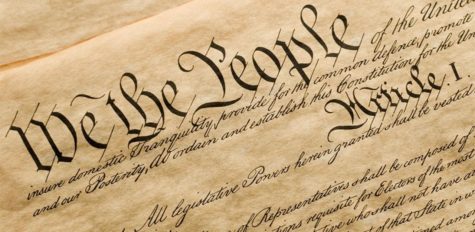 We the People of the Unite
insure domestic Tranquility, provide for the common defence, promote
and our Posterity, do ordain and establish this Constitution for the Unite
Article I
All legislative Powers herein granted shall be vested
of Representatives shall be composed of
requisite for Electors of the mos
who shall not have
of that State in